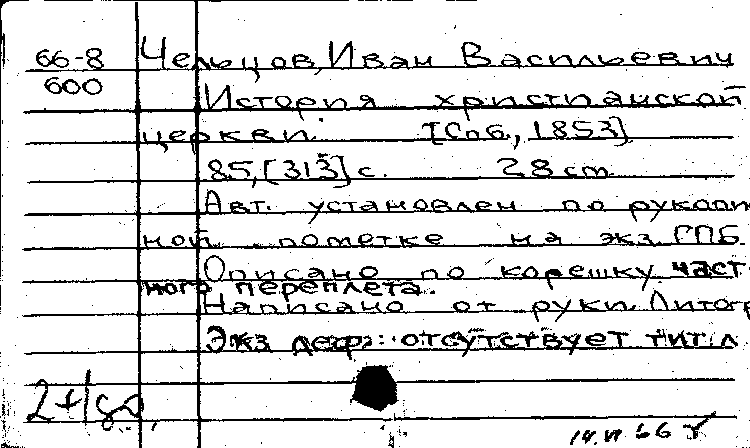 66-8 Чельцов, Иван Васильевич
600
История христианской
церкви. [Спб., 1853]
85, [313] с. 28 cm
Авт. установлен по рукопи
ной пометке на экз. ГПБ.
Описано по корешку част
ного переплета.
Написано от руки. Литогр
Экз. деф.: отсутствует тит. л.
14.VI 66